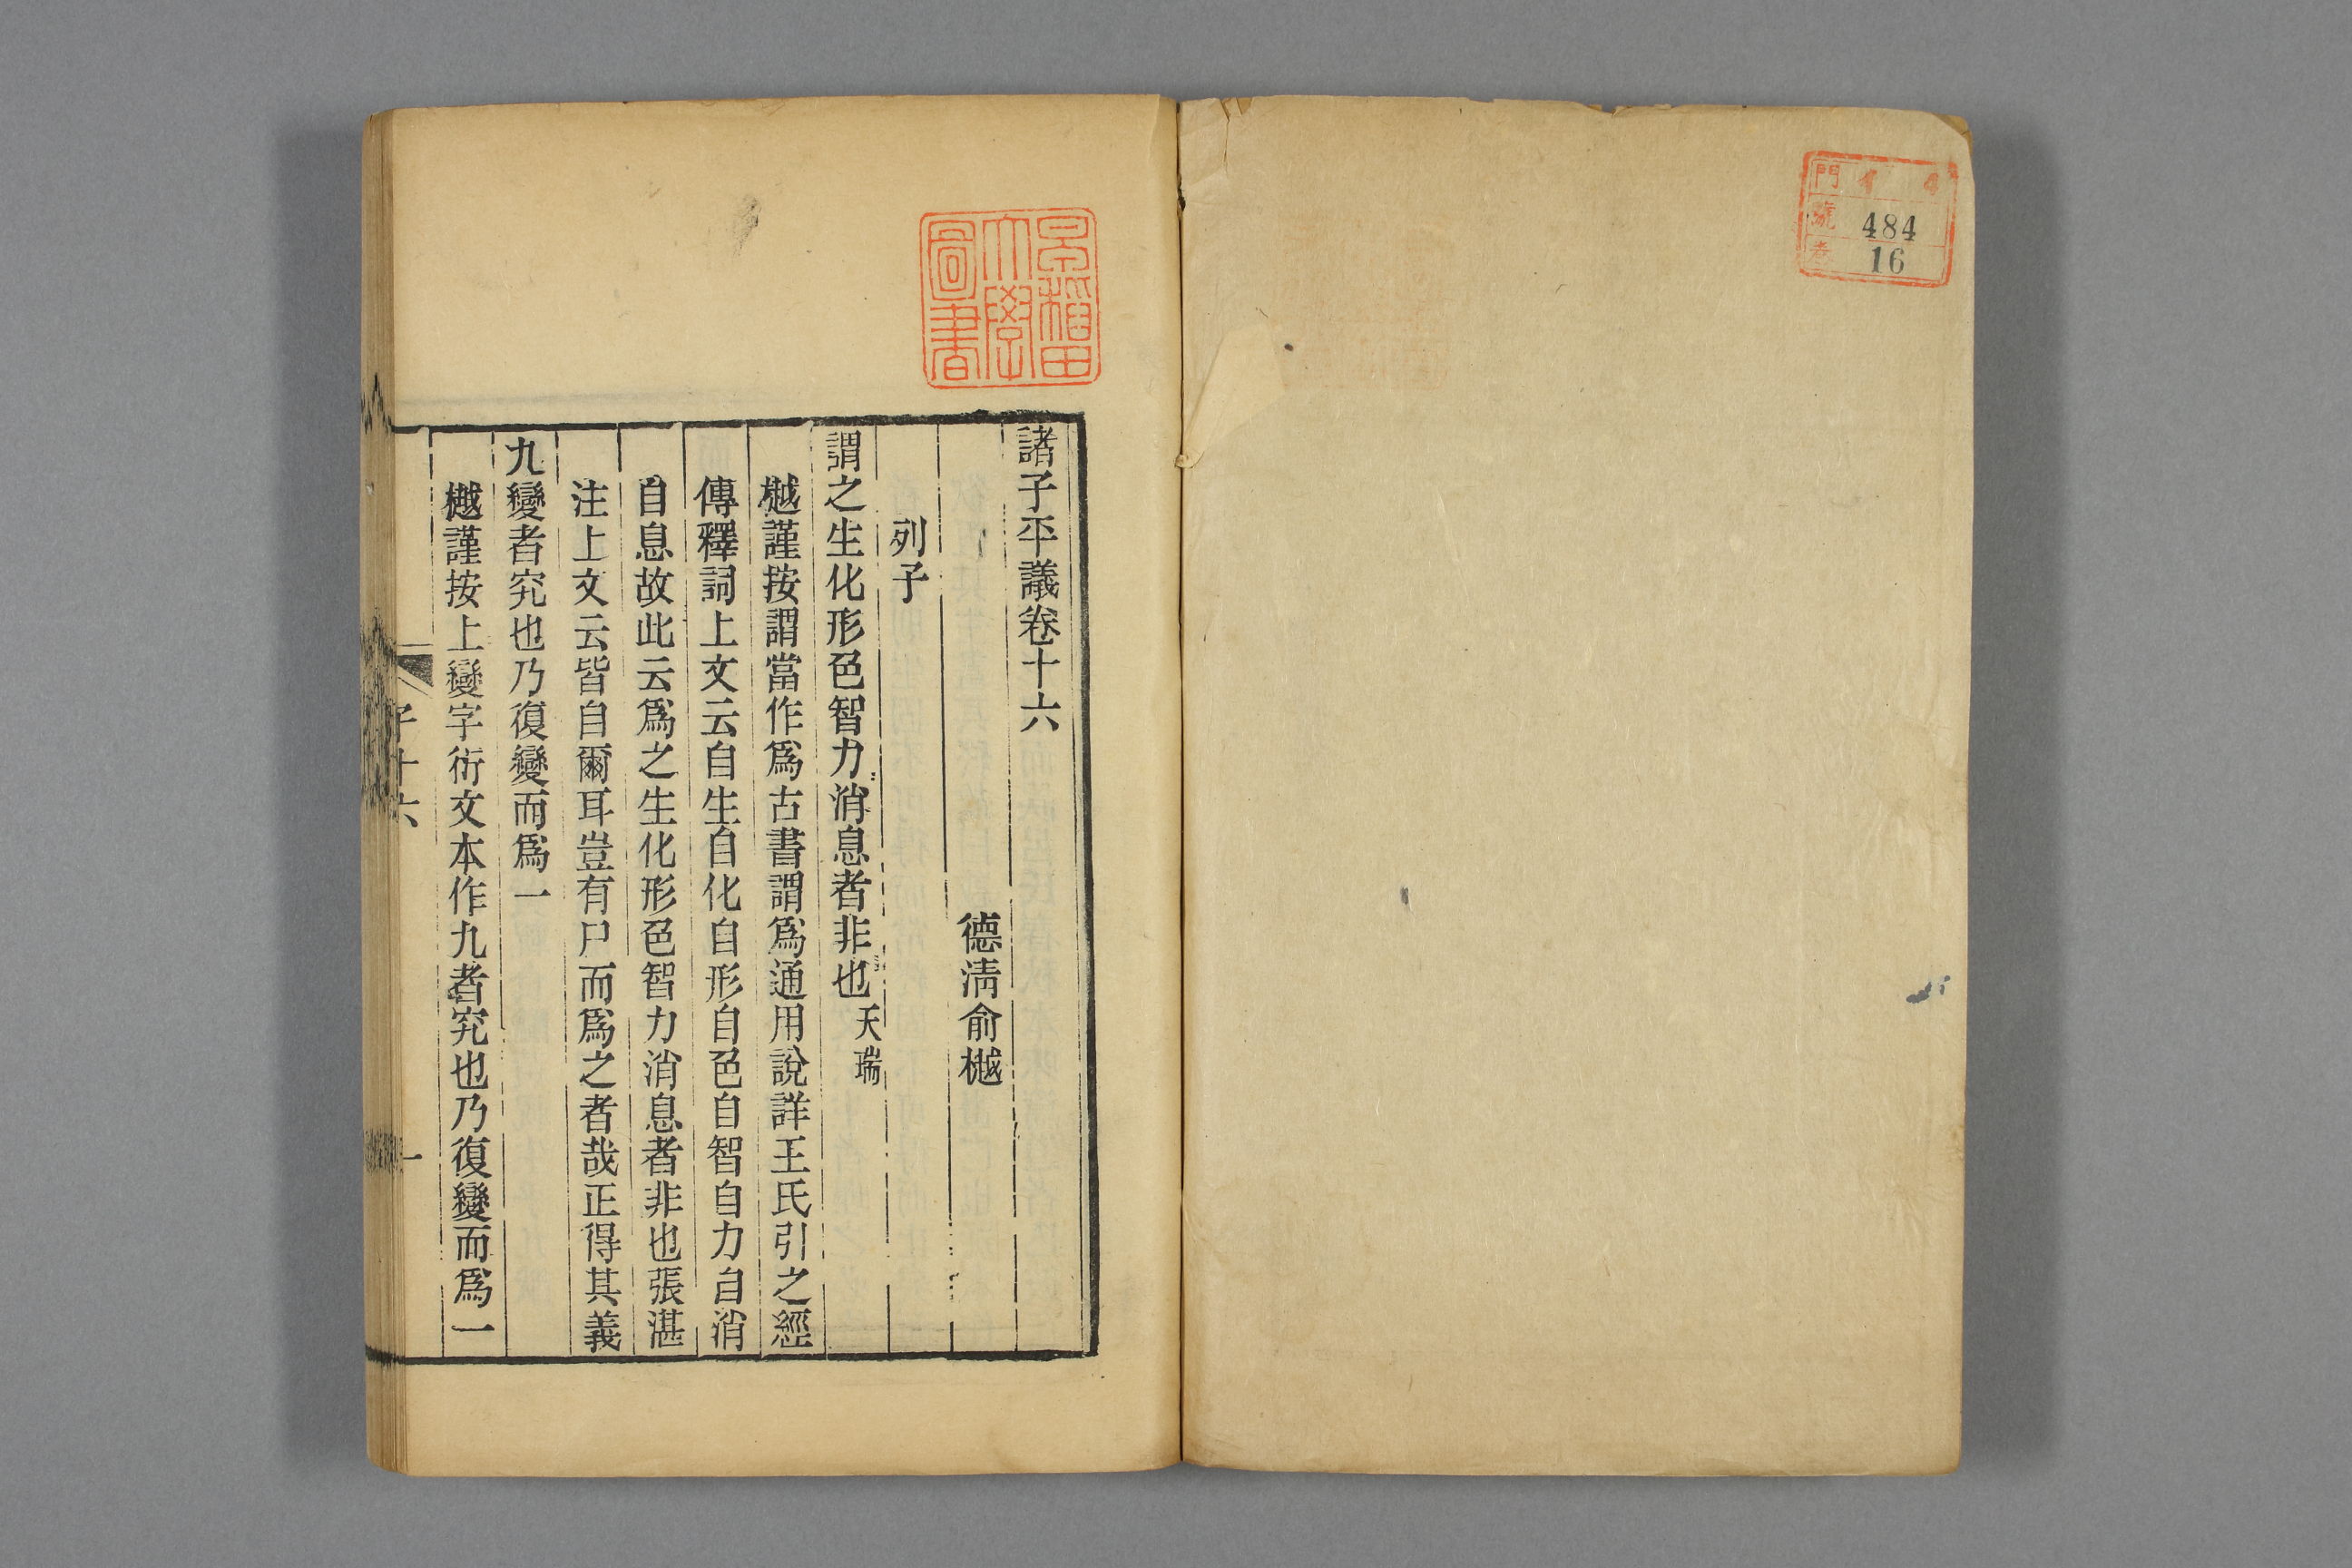 門 イ 4
號 484
卷 16
早稻田
大學
圖書
諸子平議卷十六
德淸俞樾
列子
謂之生化形色智力消息者非也天瑞
樾謹按謂當作爲古書謂爲通用說詳王氏引之經
傳釋詞上文云自生自化自形自色自智自力自消
自息故此云爲之生化形色智力消息者非也張湛
注上文云皆自爾耳豈有尸而爲之者哉正得其義
九變者究也乃復變而爲一
樾謹按上變字衍文本作九者究也乃復變而爲一
子十六
一